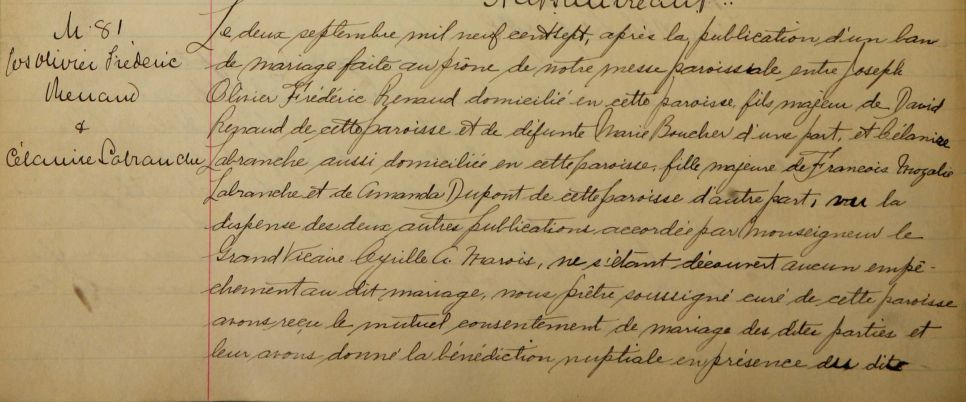 M. 81
Jos Olivier Fréderic
Renaud
&
Célanire Labranche
Le deux septembre mil neuf cent sept, après la publication d'un ban
de mariage faite au prône de notre messe paroissiale entre Joseph
Olivier Frédéric Renaud domicilié en cette paroisse, fils majeur de David
Renaud de cette paroisse et de défunte Marie Boucher d'une part, et Célanire
Labranche aussi domiciliée en cette paroisse, fille majeure de Francois
Labranche et de Amanda Dupont de cette paroisse d'autre part, vu la
dispense des deux autres publications accordée par Monseigneur le
Grand Vicaire Cyrille A. Marois, ne s'étant découvert aucun empê-
chement au dit mariage, nous prêtre soussigné curé de cette paroisse
avons reçu le mutuel consentement de mariage des dites parties et
leur avons donné la bénédiction nuptiale en présence du dit